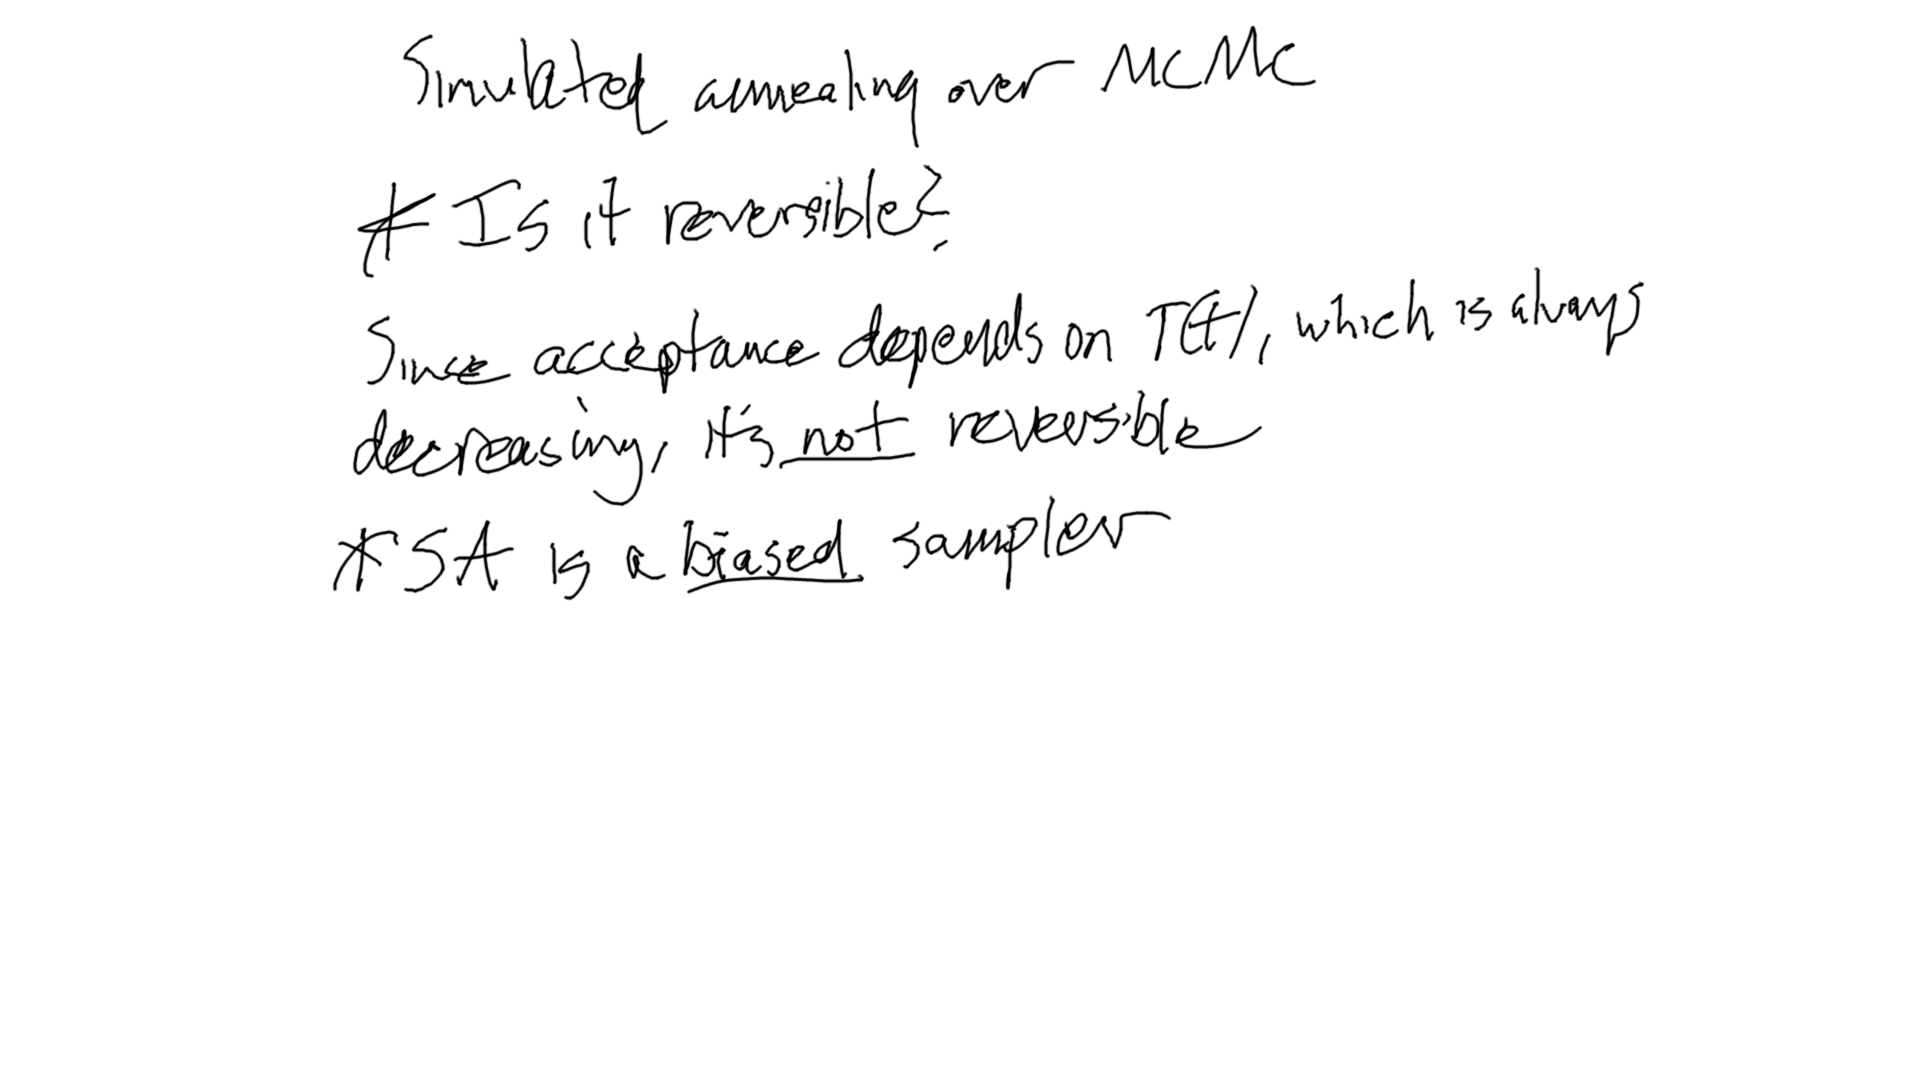 Simulated annealing over MCMC
* Is it reversible?
Since acceptance depends on T(t), which is always
decreasing, it's not reversible
* SA is a biased sampler